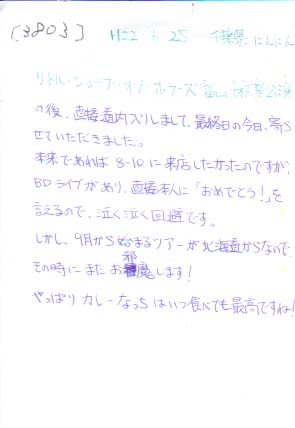 [3803] H22・6・25 千葉県、にんにん
リトル・ショップ・オブ・ホラーズ富山 秋葉公演
の後、直接道内入りしまして、最終日の今日、寄ら
せていただきました。
本来であれば 8-10に来店したかったのですが、
BDライブがあり、直接本人に「おめでとう!」を
言えるので、泣く泣く回避です。
しかし、9月から始まるツアーが北海道からなので、
その時にまたお邪魔します!
やっぱりカレーなっちはいつ食べても最高ですね!